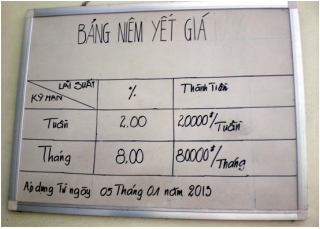 BẢNG NIÊM YẾT GIÁ
LÃI SUẤT
KỲ HẠN
%
Thành Tiền
Tuần 2.00 20000đ/Tuần
Tháng 8,00 80000đ/Tháng
Áp dụng Từ ngày 05 Tháng 01 năm 2015